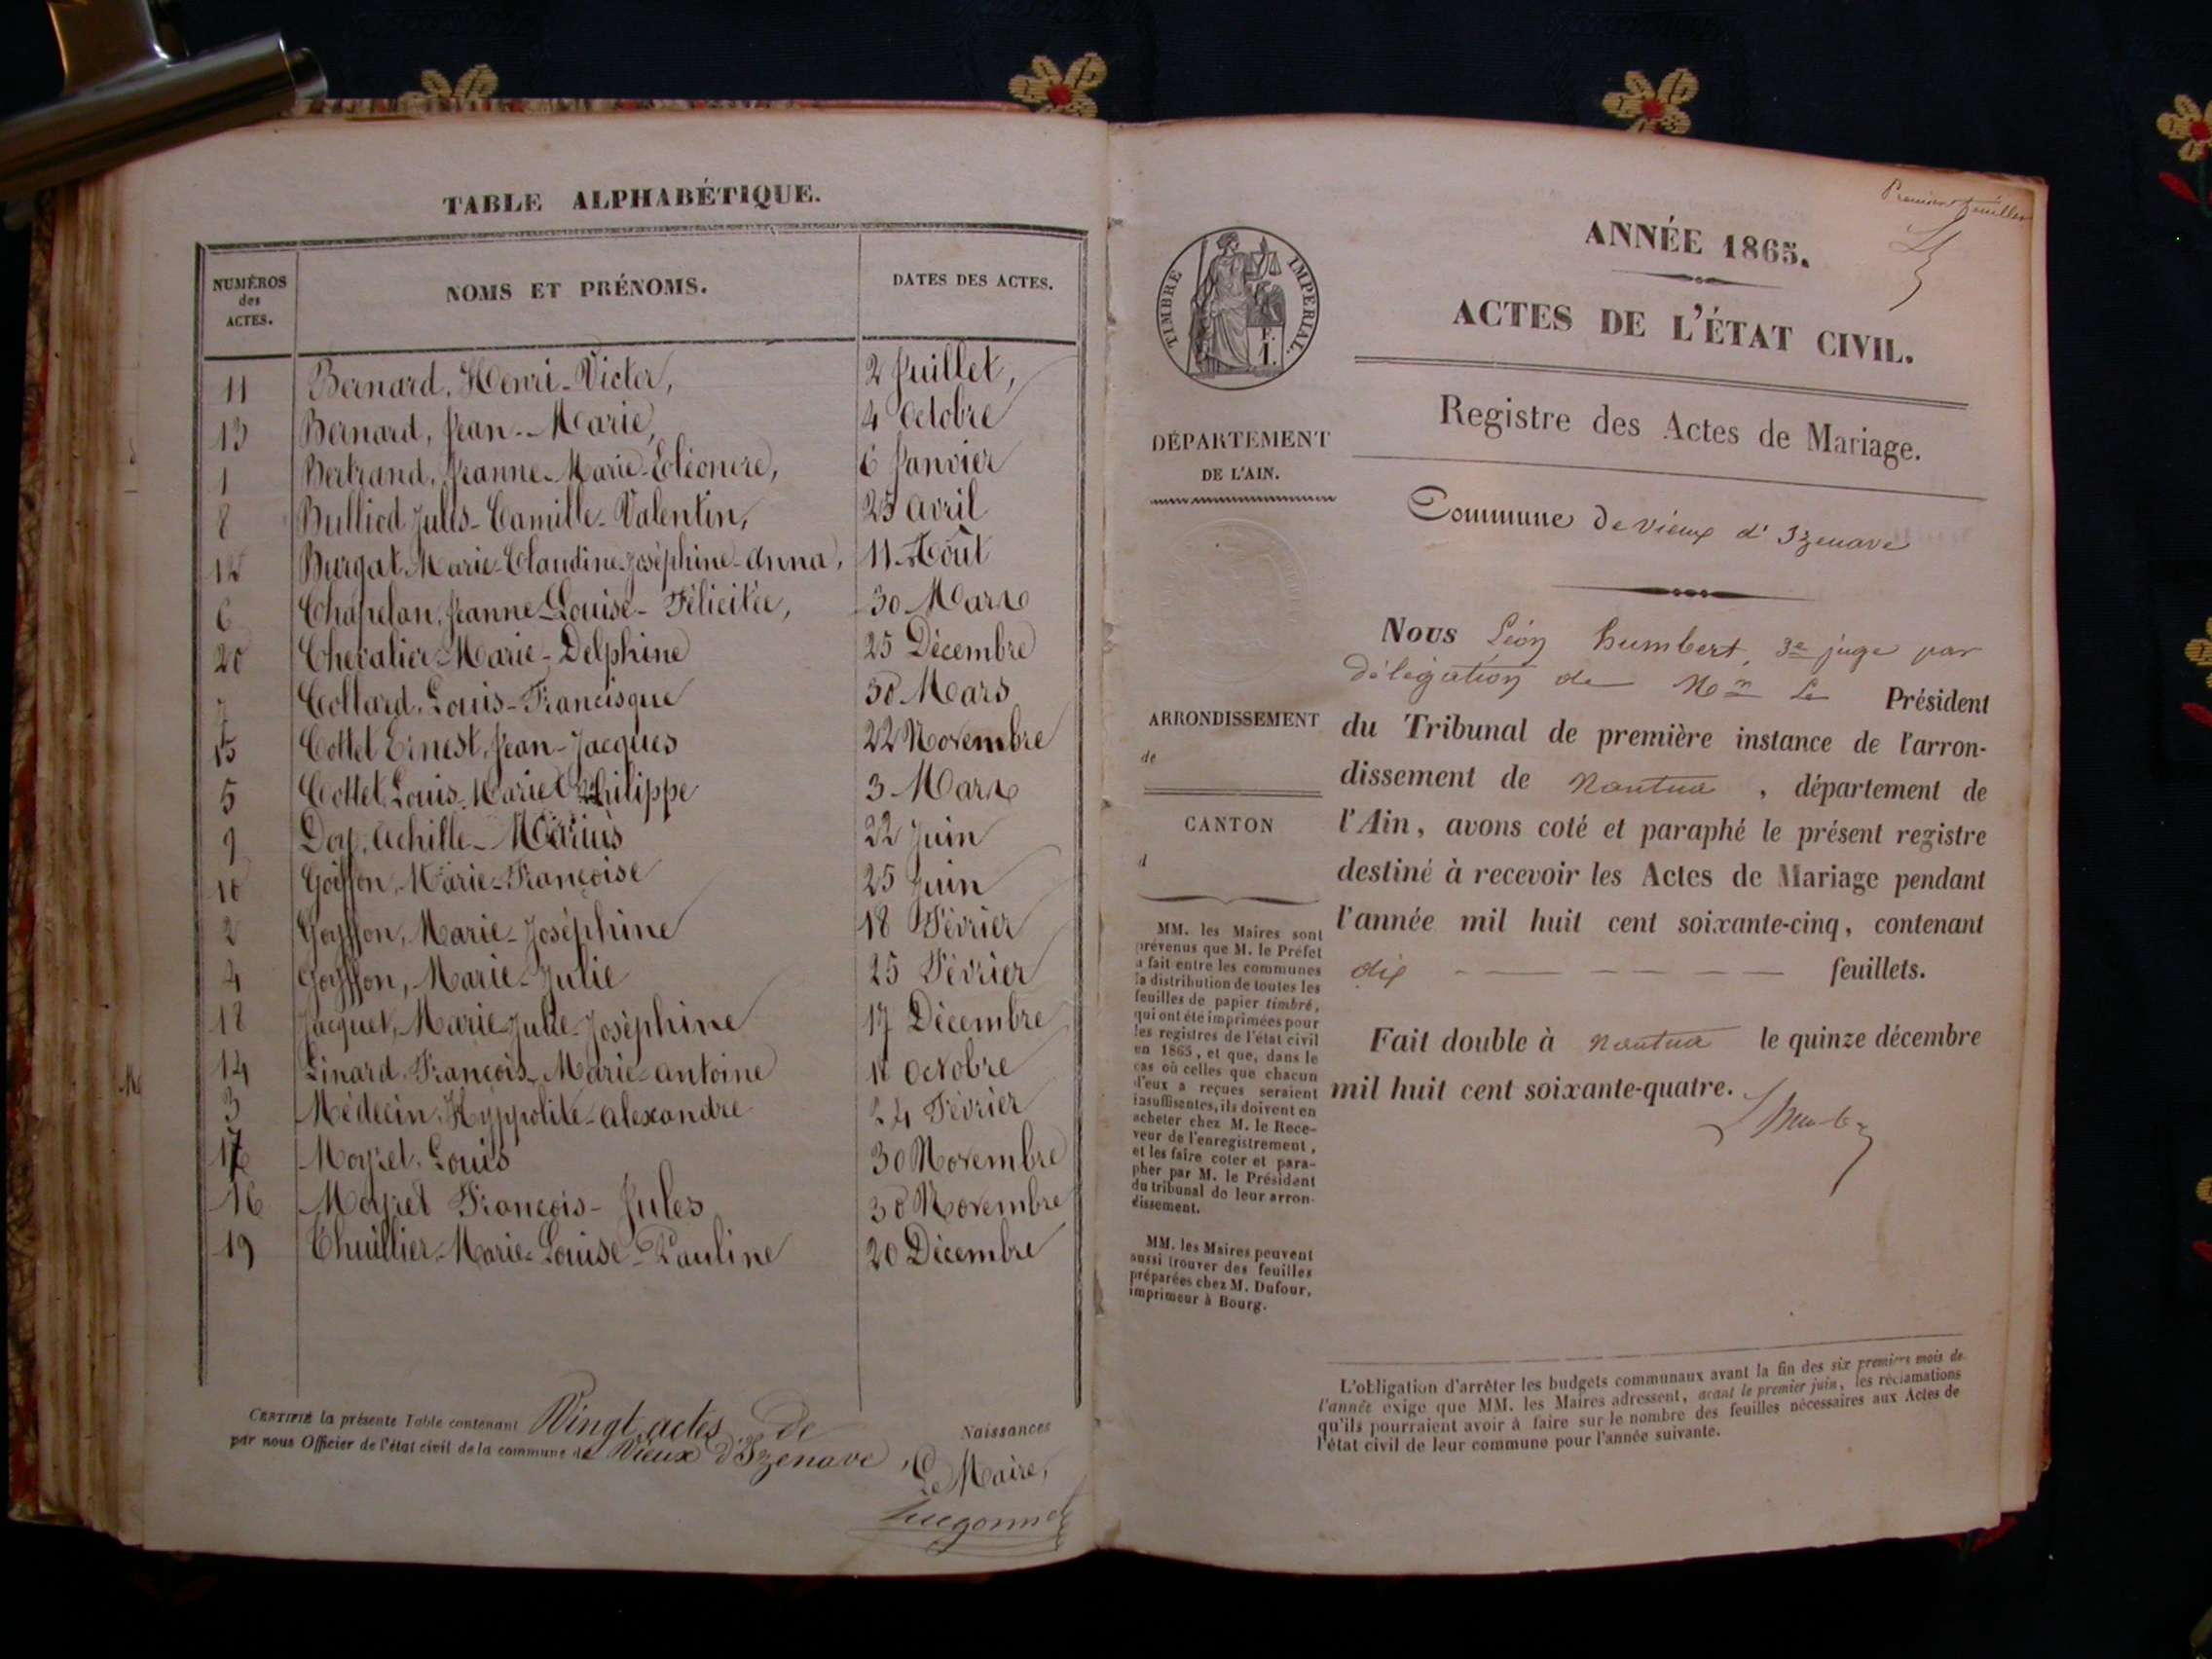 TABLE ALPHABÉTIQUE.
NUMÉROS
des
ACTES.
NOMS ET PRÉNOMS.
DATES DES ACTES.
11 Bernard, Henri-Victor, 2 Juillet,
13 Bernard, Jean-Marie, 4 Octobre
1 Bertrand, Jeanne-Marie-Eléonore, 6 Janvier
8 Bulliod Jules-Camille-Valentin, 25 avril
12 Burgat Marie-Claudine-Joséphine-Anna, 11 Août
6 Chapelan, Jeanne-Louise-Félicitée, 30 Mars
20 Chevalier Marie-Delphine 25 Décembre
7 Collard, Louis-Francisque 30 Mars
15 Cottet Ernest, Jean-Jacques 22 Novembre
5 Cottet Louis-Marie Philippe 3 Mars
9 Doy, Achille-Marius 22 Juin
10 Goiffon, Marie-Françoise 25 Juin
2 Goyffon, Marie-Joséphine 18 Février
4 Goyffon, Marie-Julie 25 Février
18 Jacquet, Marie-Julie-Joséphine 17 Décembre
14 Linard François-Marie-antoine octobre
3 Médecin, Hyppolite-alexandre 24 Février
17 Moyret, Louis 30 Novembre
16 Moyret François-Jules 30 Novembre
19 Thuillier-Marie-Louise-Pauline 20 Décembre
CERTIFIÉ la présente Table contenant Vingt actes de Naissances
par nous Officier de l'état civil de la commune de Vieux d'Izenave
Le Maire,
Hugonnet
Premier feuillet
TIMBRE IMPERIAL.
F.
1.
ANNÉE 1865.
ACTES DE L'ÉTAT CIVIL.
Registre des Actes de Mariage.
Commune de vieux d'Izenave
DÉPARTEMENT
DE L'AIN.
ARRONDISSEMENT
de
CANTON
d
MM. les Maires sont
prévenus que M. le Préfet
a fait entre les communes
la distribution de toutes les
feuilles de papier timbré,
qui ont été imprimées pour
les registres de l'état civil
en 1865, et que, dans le
cas où celles que chacun
d'eux a reçues seraient
insuffisantes, ils doivent en
acheter chez M. le Rece-
veur de l'enregistrement,
et les faire coter et para-
pher par M. le Président
du tribunal de leur arron-
dissement.
MM. les Maires peuvent
aussi trouver des feuilles
préparées chez M. Dufour,
imprimeur à Bourg.
Nous Léon humbert, 3e juge par
délégation de Mr Le Président
du Tribunal de première instance de l'arron-
dissement de Nantua, département de
l'Ain, avons coté et paraphé le présent registre
destiné à recevoir les Actes de Mariage pendant
l'année mil huit cent soixante-cinq, contenant
dix feuillets.
Fait double à Nantua le quinze décembre
mil huit cent soixante-quatre.
L'obligation d'arrêter les budgets communaux avant la fin des six premiers mois de
l'année exige que MM. les Maires adressent, avant le premier juin, les réclamations
qu'ils pourraient avoir à faire sur le nombre des feuilles nécessaires aux Actes de
l'état civil de leur commune pour l'année suivante.